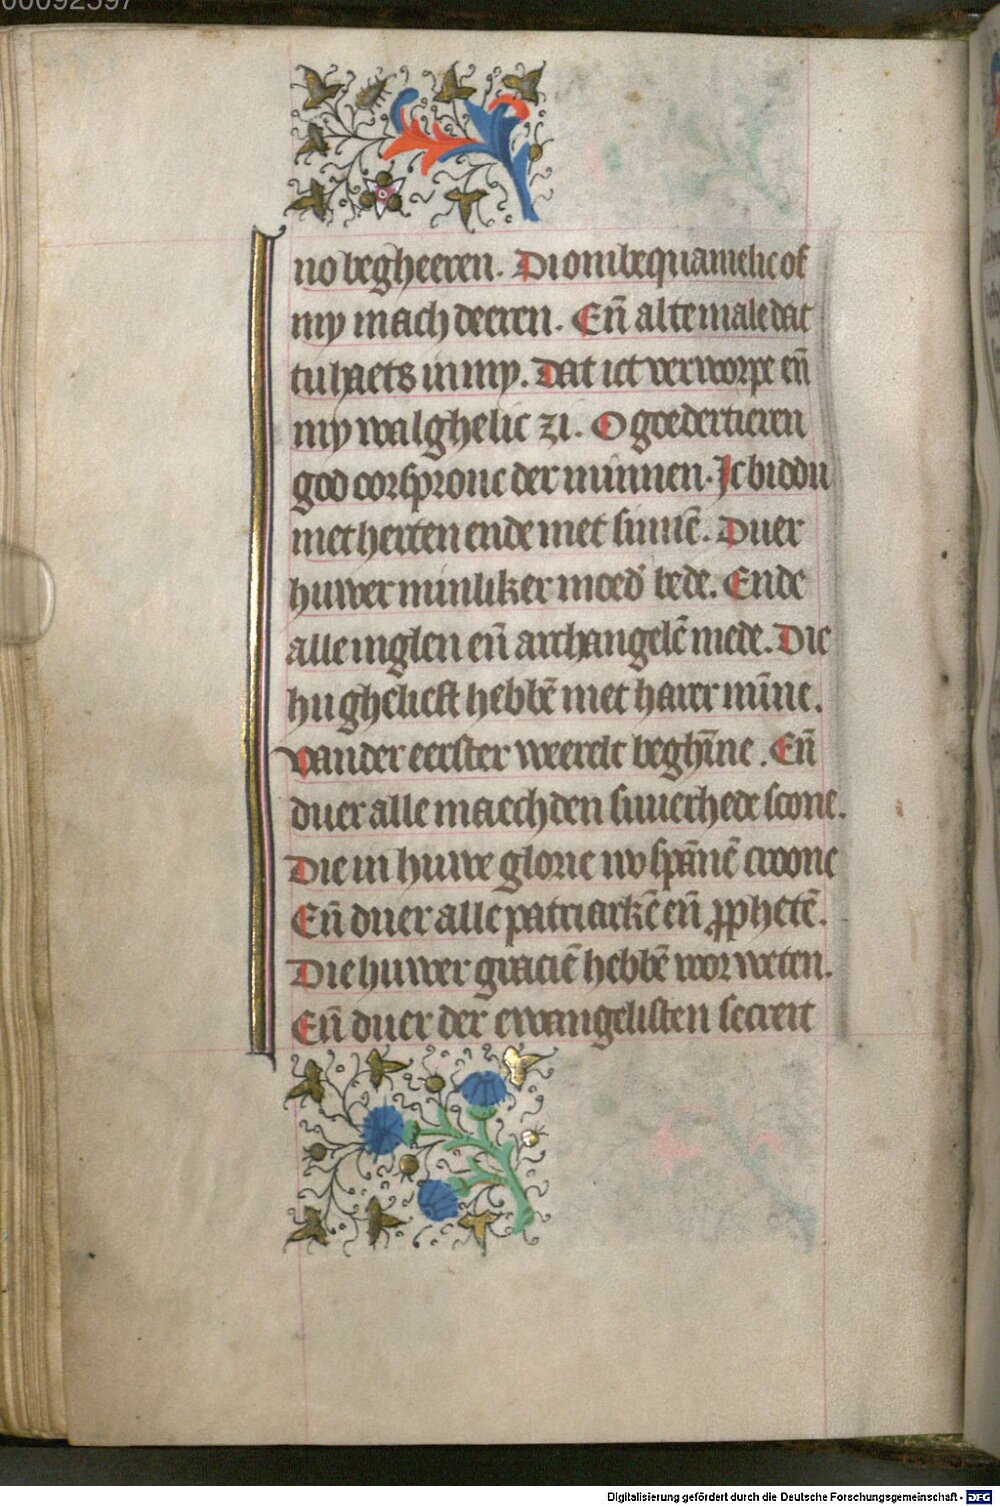 00092597
no begheeren. Di onbequamelic of
my mach deeren. En̄ altemale dat
tu haets in my. Dat ict verworpe en̄
my walghelic zi. O goedertieren
god oorspronc der minnen. Ic biddu
met herten ende met sinnē. Duer
huwer minliker moed' bede. Ende
alle inglen en̄ archangelē mede. Die
hu ghelieft hebbē met harer mīne.
Vander eerster weerelt beghīne. En̄
duer alle maechden suuerhede scone.
Die in huwe glorie nv spānē croone
En̄ duer alle patriarkē en̄ ꝓphetē.
Die huwer graciē hebbē voorweten.
En̄ duer der ewangelisten secreit
Digitalisierung gefördert durch die Deutsche Forschungsgemeinschaft - DFG